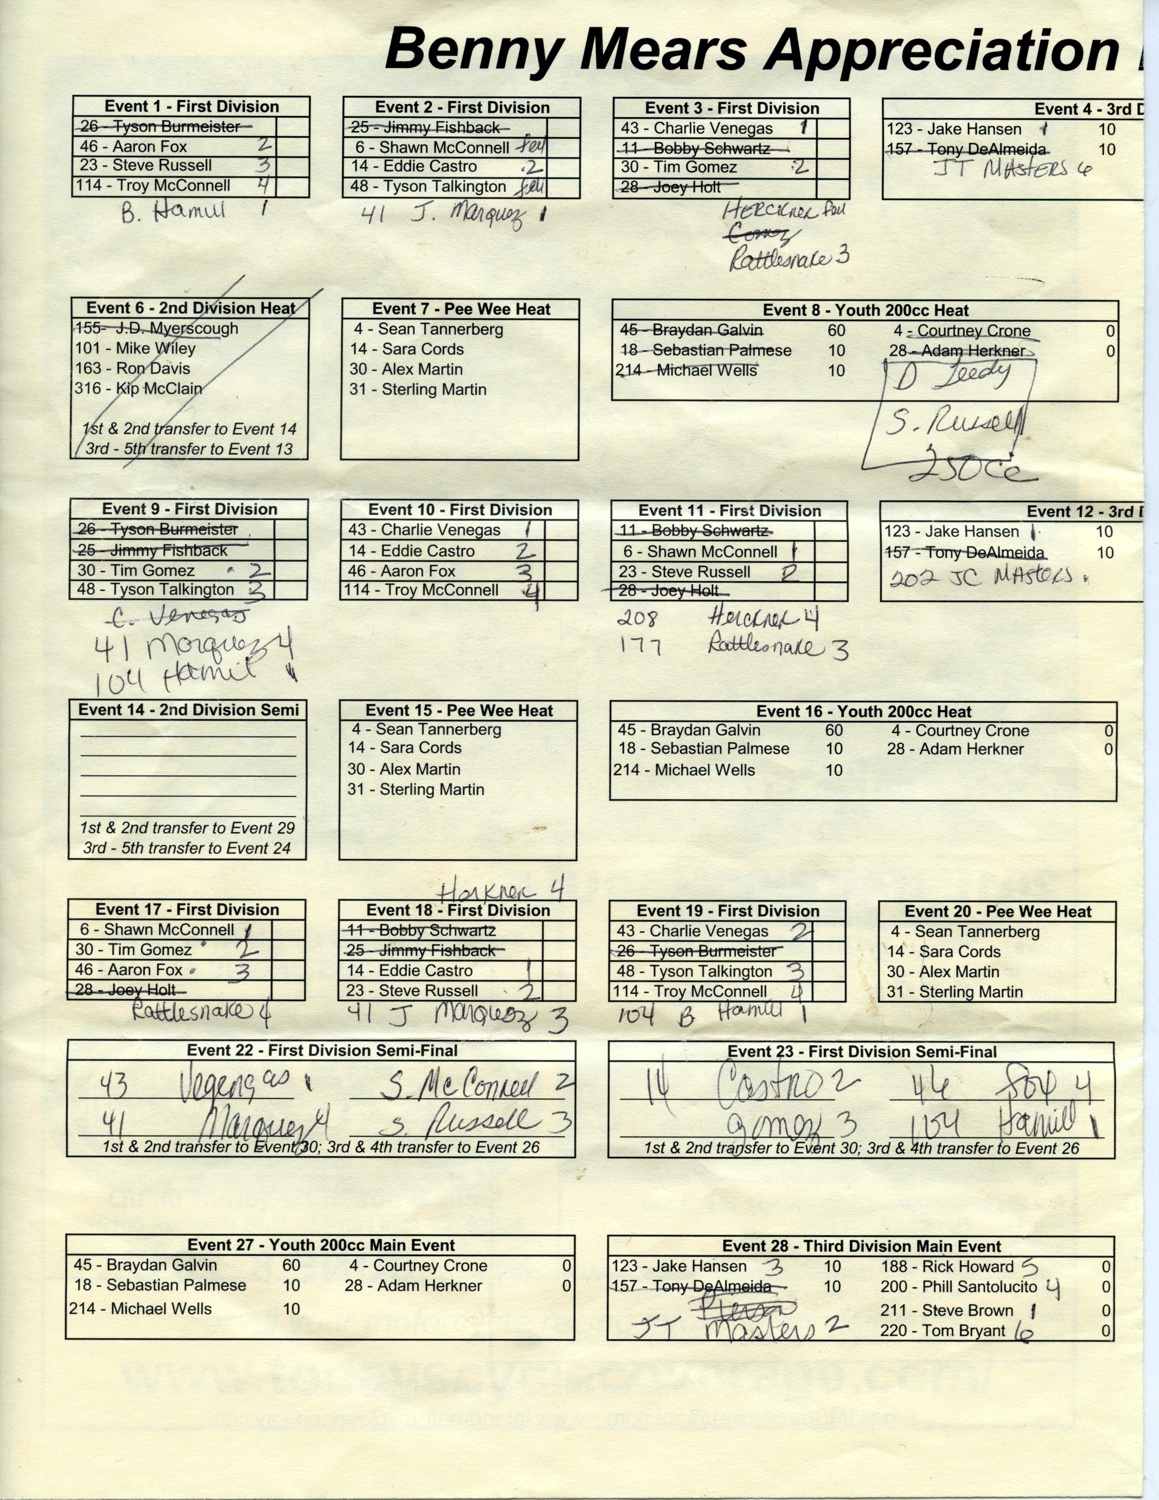 Benny Mears Appreciation
Event 1 - First Division
26 - Tyson Burmeister
46 - Aaron Fox 2
23 - Steve Russell 3
114 - Troy McConnell 4
B. Hamill 1
Event 2 - First Division
25 - Jimmy Fishback
6 - Shawn McConnell fell
14 - Eddie Castro 2
48 - Tyson Talkington fell
41 J. Marquez 1
Event 3 - First Division
43 - Charlie Venegas 1
11 - Bobby Schwartz
30 - Tim Gomez 2
28 - Joey Holt
HERCKNER fell
Rattlesnake 3
Event 4 - 3rd D
123 - Jake Hansen 1 10
157 - Tony DeAlmeida 10
JT MASTERS 6
Event 6 - 2nd Division Heat
155- J.D. Myerscough
101 - Mike Wiley
163 - Ron Davis
316 - Kip McClain
1st & 2nd transfer to Event 14
3rd - 5th transfer to Event 13
Event 7 - Pee Wee Heat
4 - Sean Tannerberg
14 - Sara Cords
30 - Alex Martin
31 - Sterling Martin
Event 8 - Youth 200cc Heat
45 - Braydan Galvin 60 4 - Courtney Crone 0
18 - Sebastian Palmese 10 28 - Adam Herkner 0
214 - Michael Wells 10
D Leedy
S. Russell
250cc
Event 9 - First Division
26 - Tyson Burmeister
25 - Jimmy Fishback
30 - Tim Gomez 2
48 - Tyson Talkington 3
C. Venegas
41 Marquez 4
104 Hamil 1
Event 10 - First Division
43 - Charlie Venegas 1
14 - Eddie Castro 2
46 - Aaron Fox 3
114 - Troy McConnell 4
Event 11 - First Division
11 - Bobby Schwartz
6 - Shawn McConnell 1
23 - Steve Russell 2
28 - Joey Holt
208 Herckner 4
177 Rattlesnake 3
Event 12 - 3rd D
123 - Jake Hansen 1 10
157 - Tony DeAlmeida 10
202 JC MASTERS
Event 14 - 2nd Division Semi
1st & 2nd transfer to Event 29
3rd - 5th transfer to Event 24
Event 15 - Pee Wee Heat
4 - Sean Tannerberg
14 - Sara Cords
30 - Alex Martin
31 - Sterling Martin
Event 16 - Youth 200cc Heat
45 - Braydan Galvin 60 4 - Courtney Crone 0
18 - Sebastian Palmese 10 28 - Adam Herkner 0
214 - Michael Wells 10
Event 17 - First Division
6 - Shawn McConnell 1
30 - Tim Gomez 2
46 - Aaron Fox 3
28 - Joey Holt
Rattlesnake 4
Horkner 4
Event 18 - First Division
11 - Bobby Schwartz
25 - Jimmy Fishback
14 - Eddie Castro 1
23 - Steve Russell 2
41 J Marquez 3
Event 19 - First Division
43 - Charlie Venegas 2
26 - Tyson Burmeister
48 - Tyson Talkington 3
114 - Troy McConnell 4
104 B Hamill 1
Event 20 - Pee Wee Heat
4 - Sean Tannerberg
14 - Sara Cords
30 - Alex Martin
31 - Sterling Martin
Event 22 - First Division Semi-Final
43 Vegengas 1 S. McConnell 2
41 Marquez 4 S. Russell 3
1st & 2nd transfer to Event 30; 3rd & 4th transfer to Event 26
Event 23 - First Division Semi-Final
14 Castro 2 46 Fox 4
gomez 3 104 Hamill 1
1st & 2nd transfer to Event 30; 3rd & 4th transfer to Event 26
Event 27 - Youth 200cc Main Event
45 - Braydan Galvin 60 4 - Courtney Crone 0
18 - Sebastian Palmese 10 28 - Adam Herkner 0
214 - Michael Wells 10
Event 28 - Third Division Main Event
123 - Jake Hansen 3 10 188 - Rick Howard 5 0
157 - Tony DeAlmeida 10 200 - Phill Santolucito 4 0
211 - Steve Brown 1 0
JT Masters 2 220 - Tom Bryant 6 0